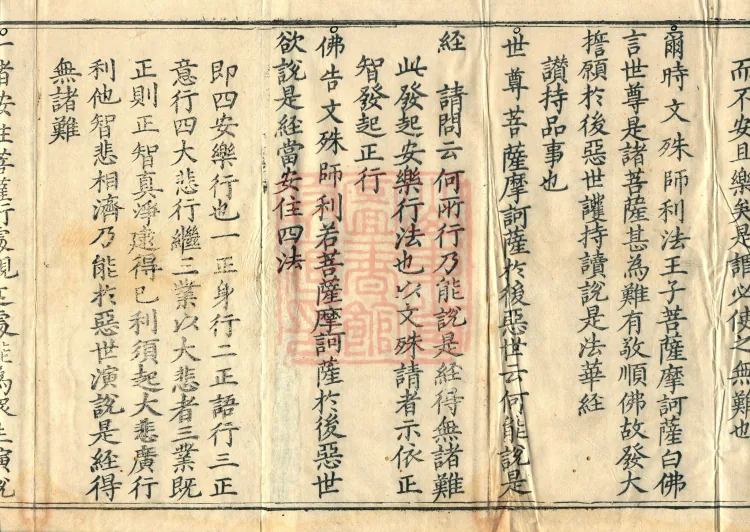 而不安且樂矣是謂必使之無難也
爾時文殊師利法王子菩薩摩訶薩白佛
言世尊是諸菩薩甚為難有敬順佛故發大
誓願於後惡世護持讀說是法華經
讚持品事也
世尊菩薩摩訶薩於後惡世云何能說是
經　請問云何所行乃能說是經得無諸難
此發起安樂行法也以文殊請者示依正
智發起正行
佛告文殊師利若菩薩摩訶薩於後惡世
欲說是經當安住四法
即四安樂行也一正身行二正語行三正
意行四大悲行繼三業以大悲者三業既
正則正智真淨逮得已利須起大悲廣行
利他智悲相濟乃能於惡世演說是經得
無諸難
一者安住菩薩行處親近處能為眾生演說